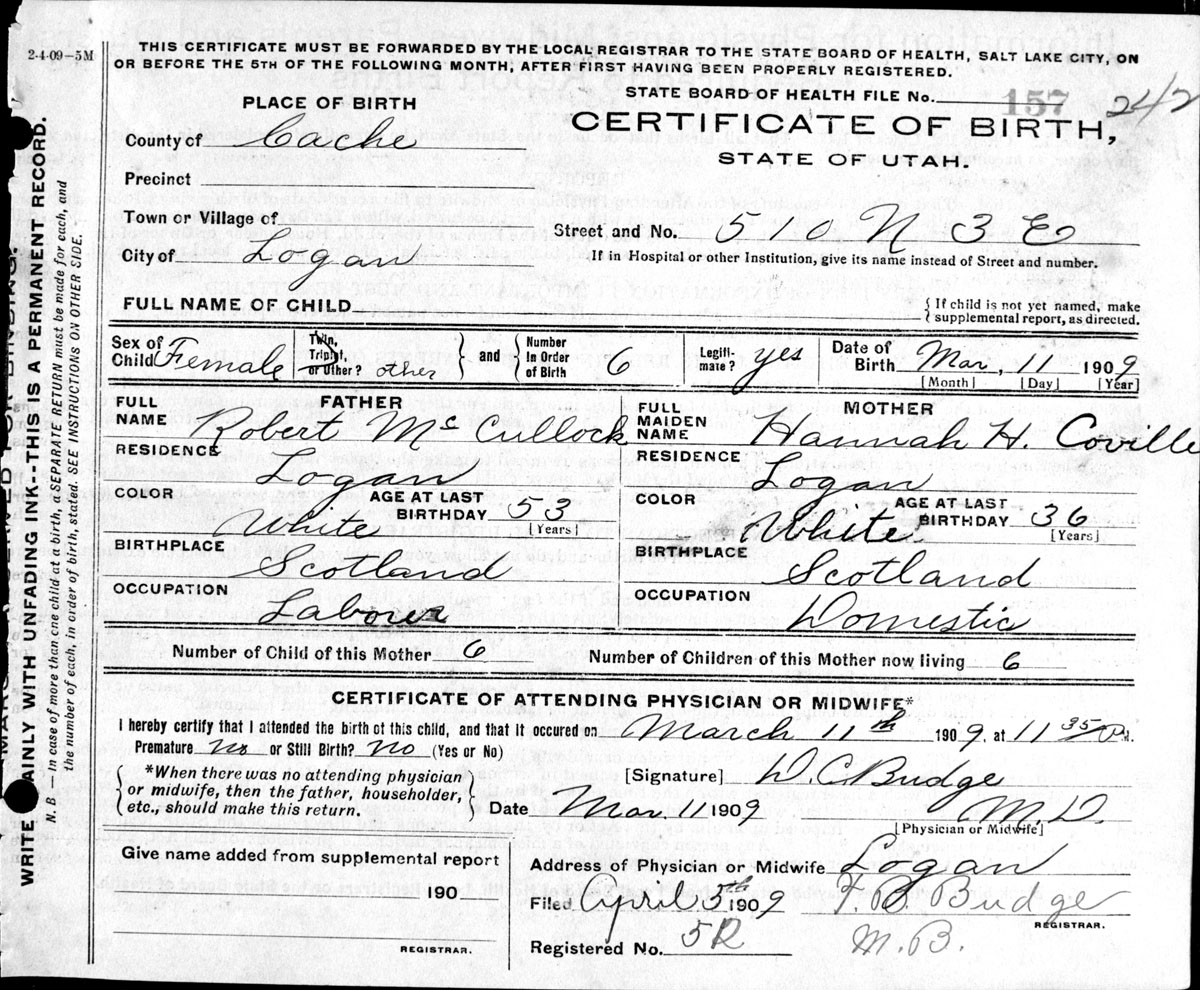 2-4-09-5M
THIS CERTIFICATE MUST BE FORWARDED BY THE LOCAL REGISTRAR TO THE STATE BOARD OF HEALTH, SALT LAKE CITY, ON
OR BEFORE THE 5TH OF THE FOLLOWING MONTH, AFTER FIRST HAVING BEEN PROPERLY REGISTERED.
STATE BOARD OF HEALTH FILE No. 157 242
CERTIFICATE OF BIRTH,
STATE OF UTAH.
PLACE OF BIRTH
County of Cache
Precinct
Town or Village of
City of Logan
Street and No. 510 N 3 E
If in Hospital or other Institution, give its name instead of Street and number.
FULL NAME OF CHILD
{ If child is not yet named, make
supplemental report, as directed.
Sex of Child Female
Twin, Triplet, or Other? other } and { Number in Order of Birth 6
Legitimate? yes
Date of Birth Mar, 11 1909
[Month] [Day] [Year]
FATHER
FULL NAME Robert Mc Cullock
RESIDENCE Logan
COLOR White
AGE AT LAST BIRTHDAY 53
[Years]
BIRTHPLACE Scotland
OCCUPATION Laborer
MOTHER
FULL MAIDEN NAME Hannah H. Coville
RESIDENCE Logan
COLOR White
AGE AT LAST BIRTHDAY 36
[Years]
BIRTHPLACE Scotland
OCCUPATION Domestic
Number of Child of this Mother 6
Number of Children of this Mother now living 6
CERTIFICATE OF ATTENDING PHYSICIAN OR MIDWIFE*
I hereby certify that I attended the birth of this child, and that it occured on March 11th 1909, at 11 35 P.M.
Premature No or Still Birth? No (Yes or No)
{ *When there was no attending physician
or midwife, then the father, householder,
etc., should make this return. }
[Signature] D. C Budge
M.D.
[Physician or Midwife]
Date Mar. 11 1909
Give name added from supplemental report
190
REGISTRAR.
Address of Physician or Midwife Logan
Filed April 5th 1909 F. B. Budge
REGISTRAR.
Registered No. 52 M.B.
WRITE PLAINLY WITH UNFADING INK--THIS IS A PERMANENT RECORD.
N. B.—In case of more than one child at a birth, SEPARATE RETURN must be made for each, and
the number of each, in order of birth, stated. SEE INSTRUCTIONS ON OTHER SIDE.